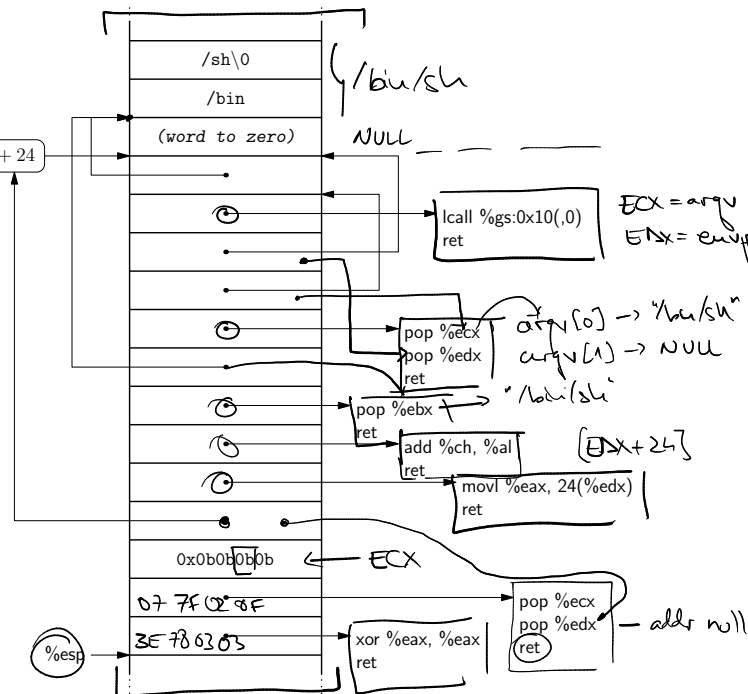 /sh\0
/bin
/bin/sh
(word to zero)
NULL
+ 24
lcall %gs:0x10(,0)
ret
ECX = argv
EDX = envp
pop %ecx
pop %edx
ret
argv[0] → "/bin/sh"
argv[1] → NULL
"/bin/sh"
pop %ebx
ret
add %ch, %al
ret
[EDX+24]
movl %eax, 24(%edx)
ret
0x0b0b0b0b
ECX
pop %ecx
pop %edx
ret
addr null
3E 78 03 03
xor %eax, %eax
ret
%esp